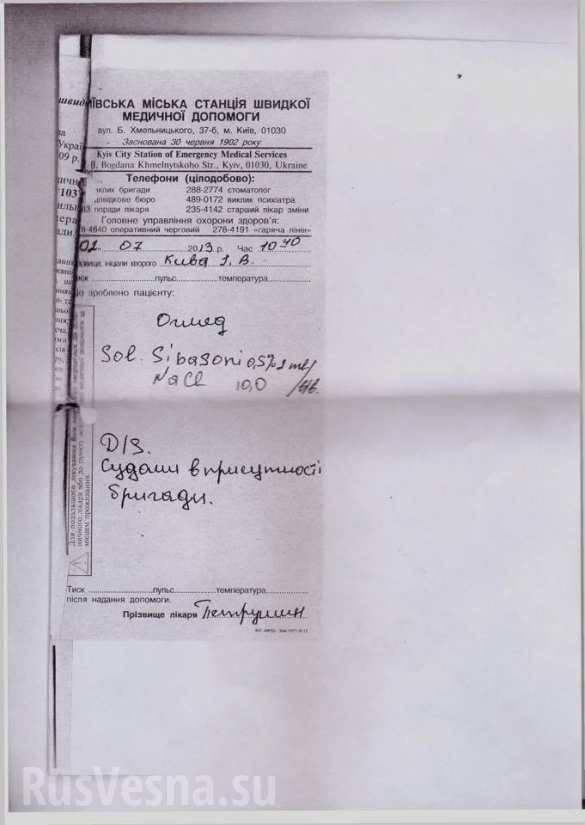 ІВСЬКА МІСЬКА СТАНЦІЯ ШВИДКОЇ
МЕДИЧНОЇ ДОПОМОГИ
вул. Б. Хмельницького, 37-б, м. Київ, 01030
Заснована 30 червня 1902 року
Kyiv City Station of Emergency Medical Services
Bogdana Khmelnytskoho Str., Kyiv, 01030, Ukraine
Телефони (цілодобово):
клик бригади 288-2774 стоматолог
відкове бюро 489-0172 виклик психіатра
поради лікаря 235-4142 старший лікар зміни
Головне управління охорони здоров'я:
8-4640 оперативний черговий 278-4191 «гаряча лінія»
02 07 2013 р. Час 10 40
ініціали хворого Кива І. В.
иск пульс температура
зроблено пацієнту:
Огляд
Sol. Sibasoni 0,5% 2 ml/
NaCl 10,0 /в/в.
Д/З.
Судоми в присутності
бригади.
Тиск пульс температура
після надання допомоги.
Прізвище лікаря Петрушин
швид
Украї
09 р.
103
RusVesna.su